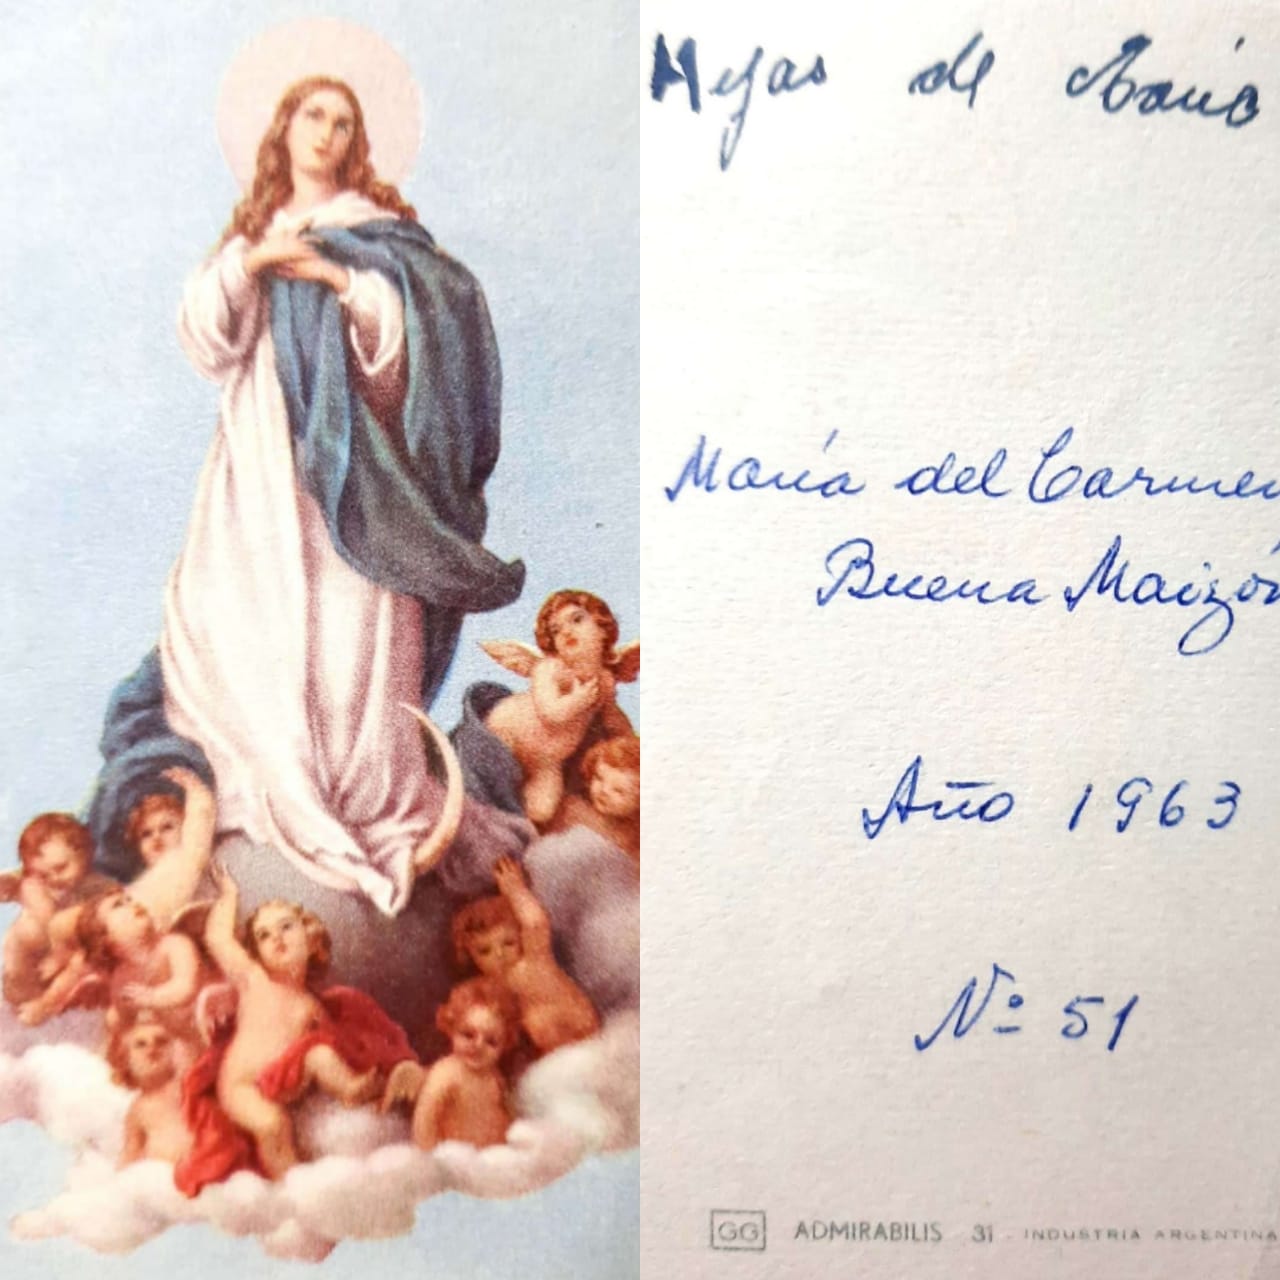 Hijas de María
María del Carmen
Buena Maizón
Año 1963
Nº 51
GG ADMIRABILIS 31 - INDUSTRIA ARGENTINA